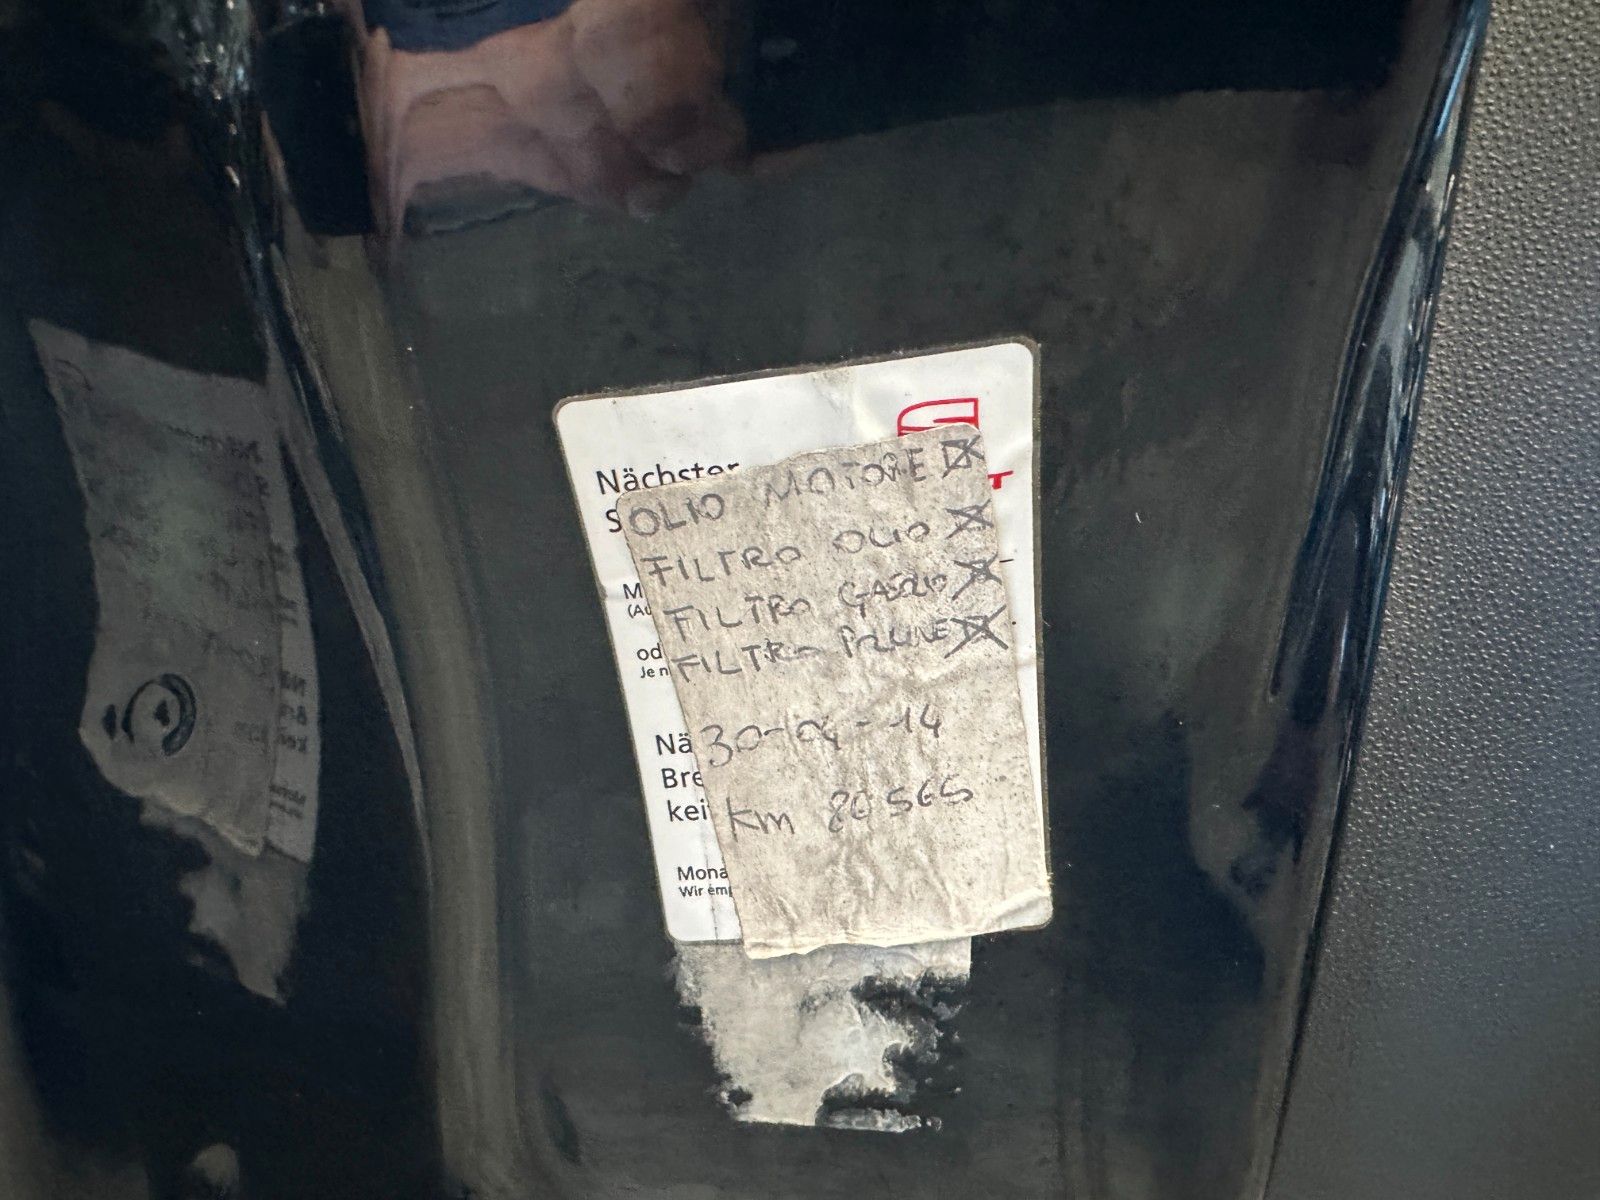 Nächster
S
OLIO MOTORE
FILTRO OLIO
FILTRO GASOLIO
FILTRO POLLINE
M
(Au
od
Je n
30-04-14
Nä
Bre
kei
Km 80565
Mona
Wir emp